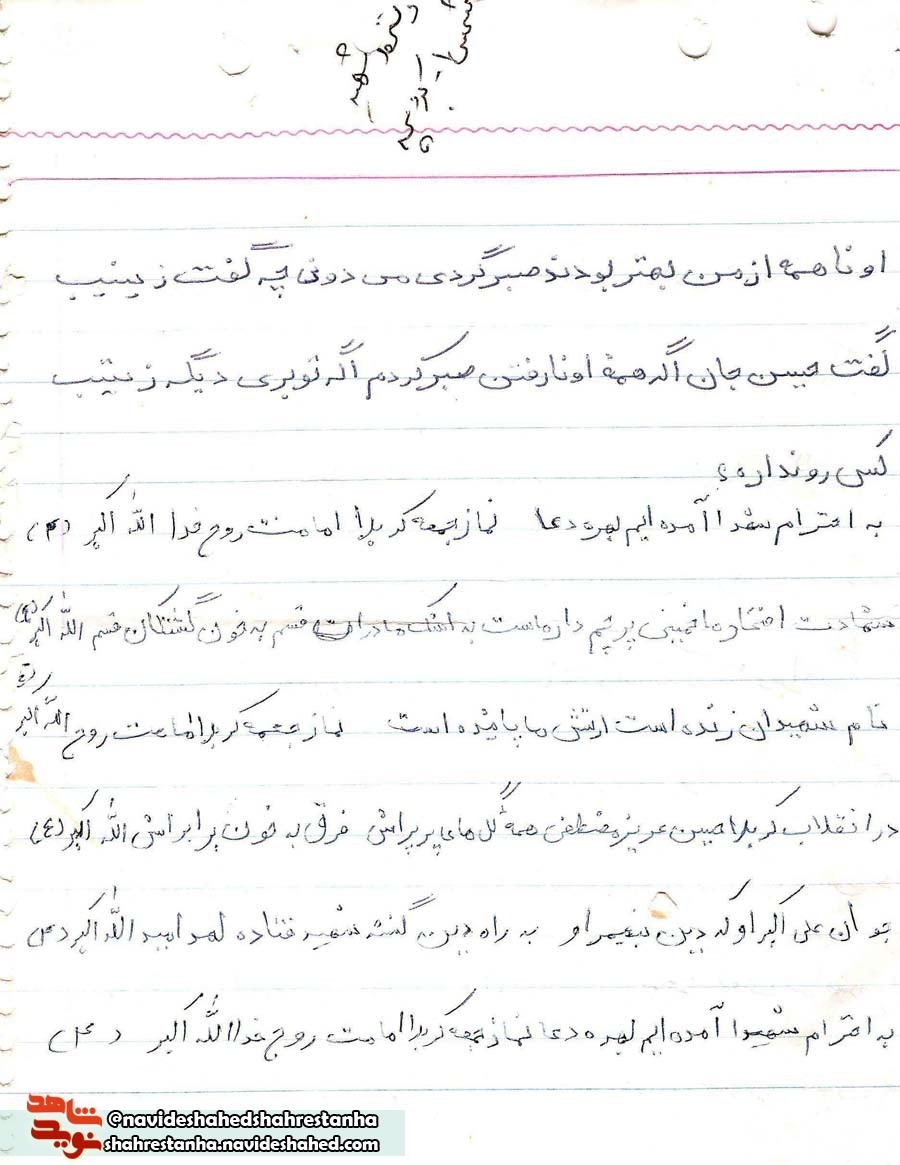 اونا همه از من بهتر بودند صبر کردی می دونی چه گفت زینب
گفت حسین جان اگه همهٔ اونا رفتن صبر کردم اگه تو بری دیگه زینب
کسی رو نداره ؟
به احترام شهدا آمده ایم بهره دعا نماز جمعه کربلا امامت روح خدا الله اکبر (۴)
شهادت افتخار ما خمینی پرچم دار ماست به اشک مادران قسم به خون گشتگان قسم الله اکبر (۴)
نام شهیدان زنده است ارتش ما پاینده است نماز جمعه کربلا امامت روح الله اکبر
در انقلاب کربلا حسین عزیز مصطفی همه گل های پرپراش غرق به خون برابراش الله اکبر (٤)
جوان علی اکبر او که دین به راه دین گشته شهید فتاده الله اکبر
به احترام شهیدا آمده ایم بهره دعا نماز جمعه کربلا امامت روح خدا الله اکبر (۴)
شاهد
نوید
@navideshahedshahrestanha
shahrestanha.navideshahed.com